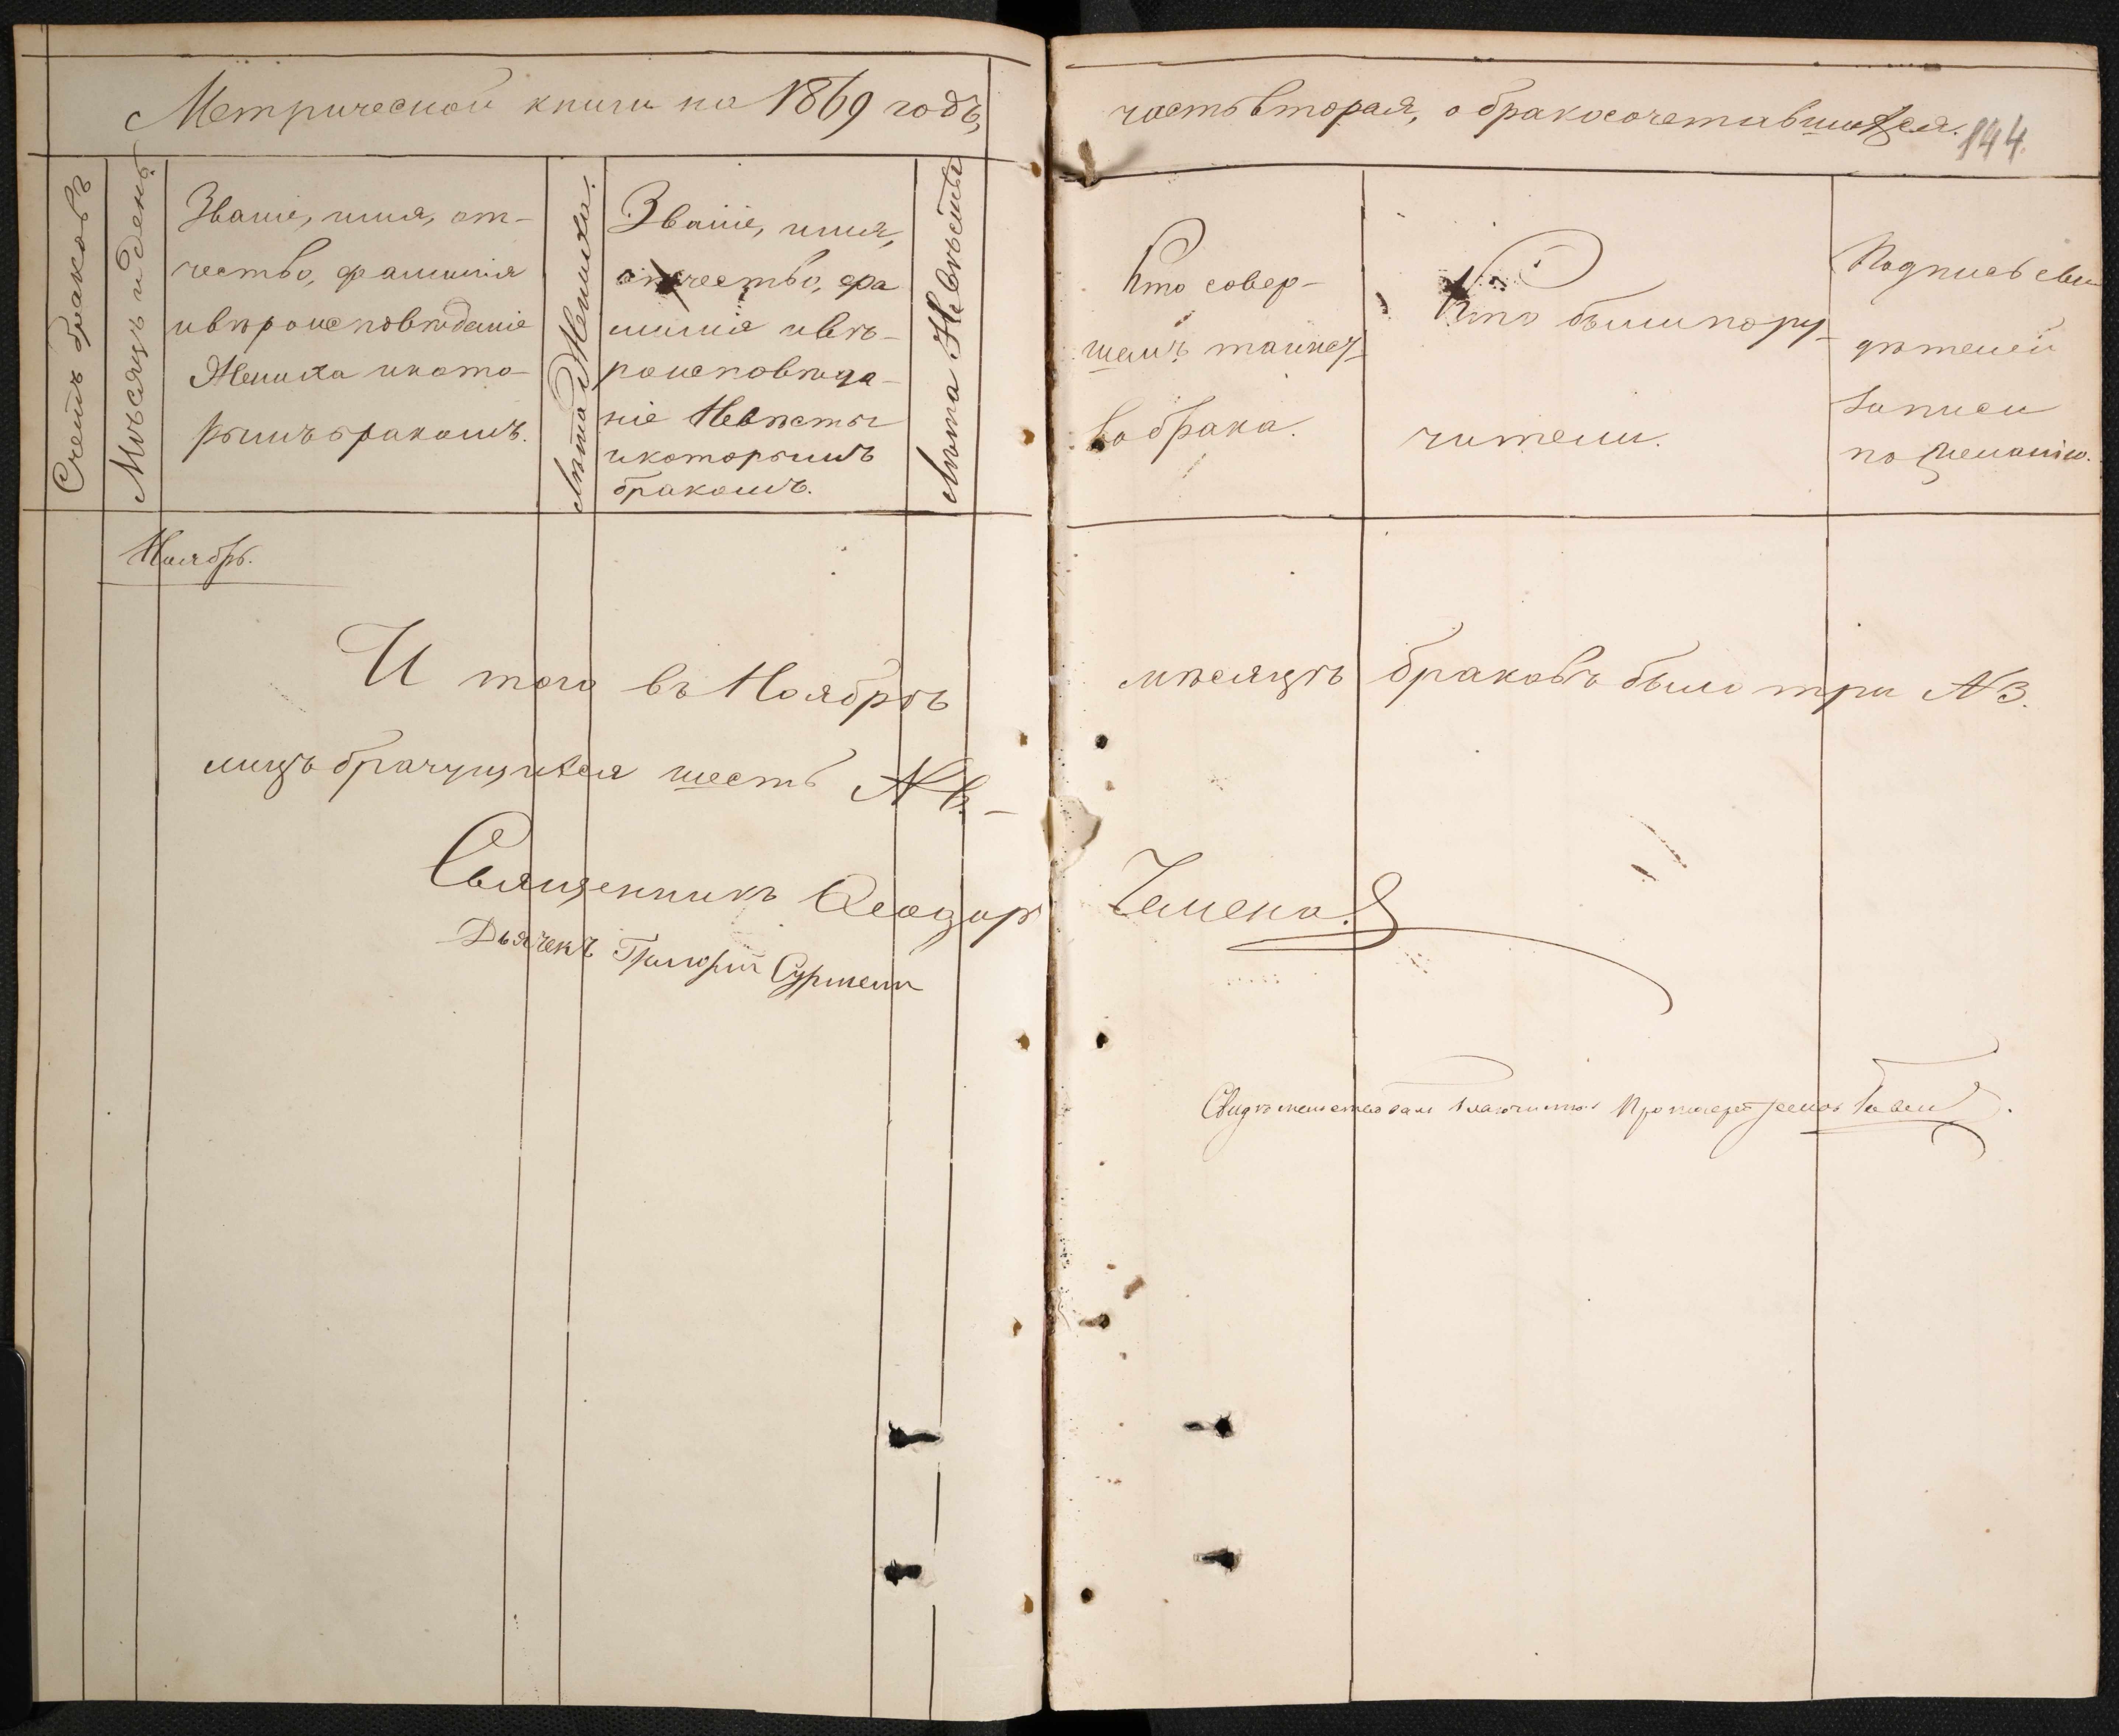 Метрической книги на 1869 годъ,
часть вторая, о бракосочетавшихся.
144.
Счетъ браковъ
Мѣсяцъ и день
Званіе, имя, от-
чество, фамилія
и вѣроисповѣданіе
Жениха и кото-
рымъ бракомъ.
Лѣта Жениха.
Званіе, имя,
отчество, фа
милія и вѣ-
роисповѣда-
ніе Невѣсты
и которымъ
бракомъ.
Лѣта Невѣсты
Кто совер-
шалъ таинст-
во брака.
Кто были пору-
чители.
Подпись сви
дѣтелей
записи
по желанію.
Ноябрь.
И того въ Ноябрѣ мѣсяцѣ браковъ было три №3.
лицъ брачущихся шесть №6.-
Священникъ Ѳеодоръ
Дьячекъ Григорій
Свидѣтельствовалъ Благочинный Протоіерей